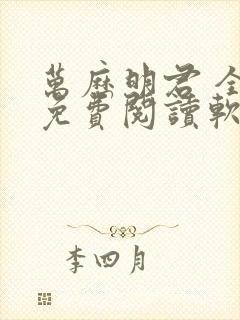 萬麻明君全
免費閱讀軟
李四月